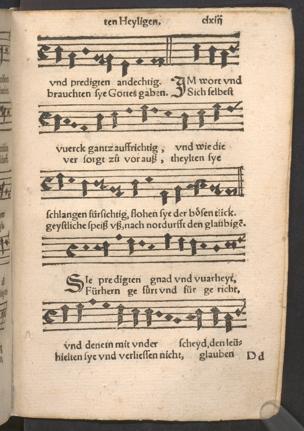 ten Heyligen. clxiij
vnd predigten andechtig. IM wort vnd
brauchten sye Gottes gaben. Sich selbest
vuerck gantz auffrichtig, vnd wie die
ver sorgt zů vorauß, theylten sye
schlangen fürsichtig, flohen sye der bösen tück.
geystliche speiß vß, nach notdurfft den glaubigẽ.
SIe predigten gnad vnd vuarheyt,
Fürhern ge fürt vnd für ge richt,
vnd denein mit vnder scheyd, den leü-
hielten sye vnd verliessen nicht, glauben Dd